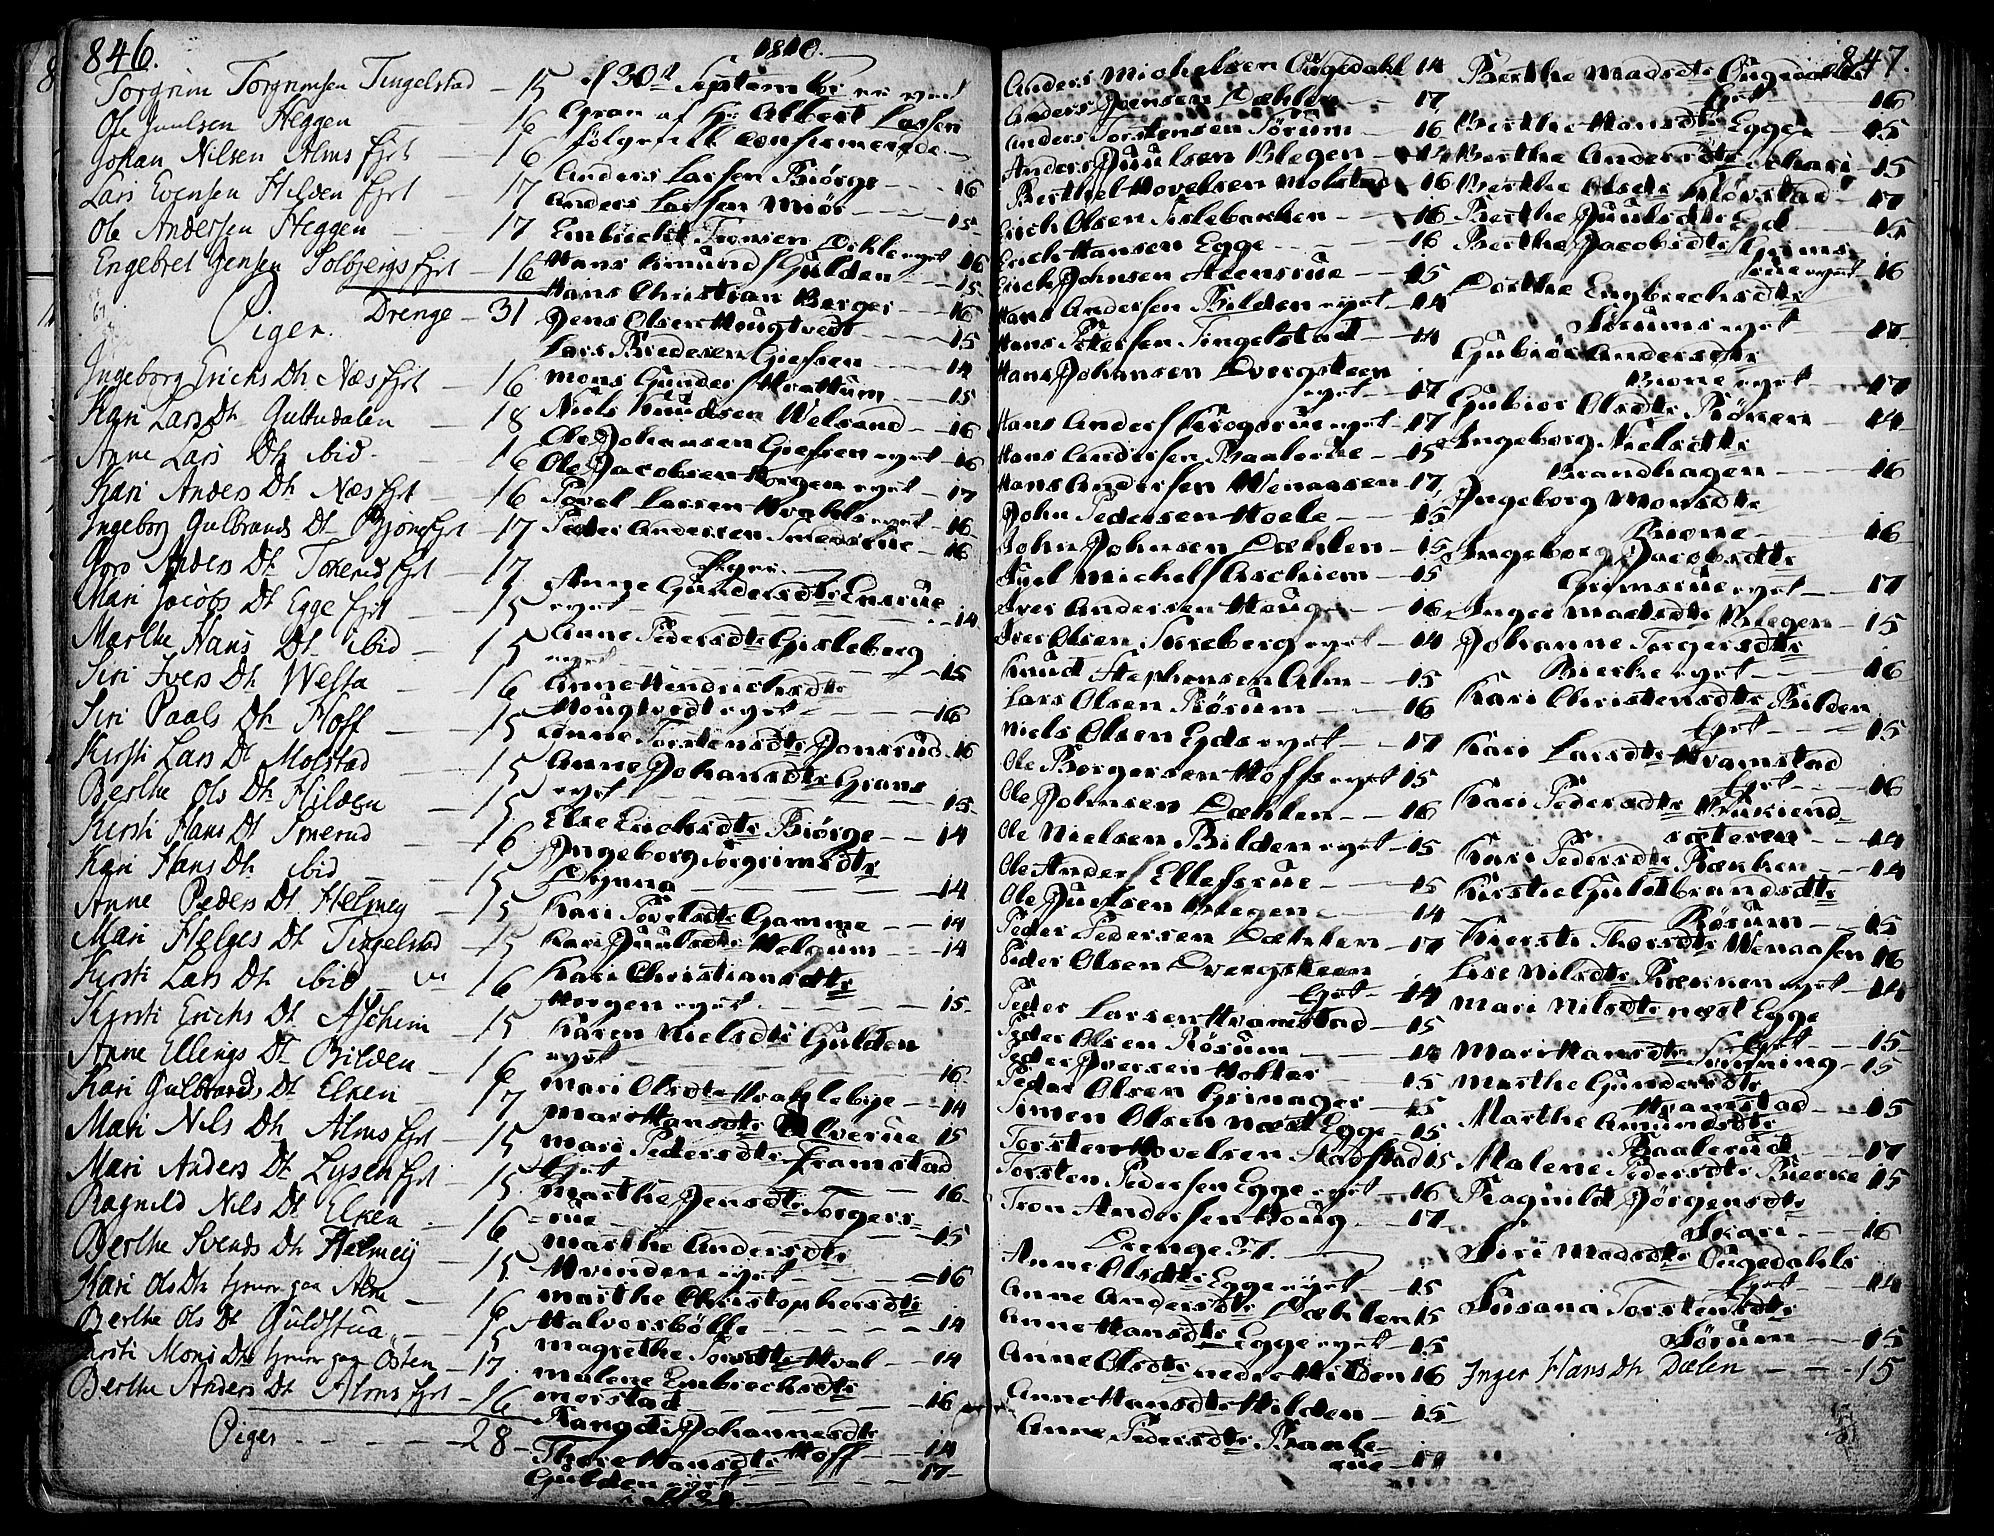 846.
Torgrim Torgrimsen Tingelstad - 15
Ole Juulsen Heggen - 16
Johan Nilsen Alms Eyet - 16
Lars Evensen Hilden Eyet - 17
Ole Andersen Heggen - 17
Engebret Jensen Solbjergs Eyet - 16
Drenge - 31
Piger.
Ingeborg Erichs Dtr Næs Eyet - 16
Kari Lars Dtr - 18
Anne Lars Dtr ibid - 16
Kari Anders Dtr Næs Eyet - 16
Ingeborg Gulbrands Dt Bjone Eyet - 17
Goro Anders Dt Eyet - 17
Mari Jacobs Dt Egge Eyet - 15
Marthe Hans Dt ibid - 15
Siri Ivers Dt - 16
Siri Paals Dt Hoff - 15
Kirsti Lars Dt Molstad - 15
Berthe Ols Dtr Hilden - 15
Kirsti Hans Dt Smerud - 16
Kari Hans Dtr ibid - 15
Anne Peders Dt Helmey - 15
Mari Helges Dt Tingelstad - 15
Kirsti Lars Dt ibid - 16
Kirsti Erichs Dt Aschim - 15
Anne Ellings Dt Bilden - 16
Kari Gulbrands Dt Elken - 17
Mari Nils Dtr Alms Eyet - 15
Mari Anders Dt Lysen Eyet - 15
Ragnild Nils Dt Elken - 16
Berthe Svends Dtr Helmeij - 15
Kari Ols Dtr paa Alm - 16
Berthe Ols Dt Guldstua - 15
Kirsti Mons Dtr paa Osten - 17
Berthe Anders Dt Alms Eyet - 16
Piger - 28 -
1810.
d 30te September er ved
Gran af Hr. Albert Lassen
følgende Confirmerede.
Anders Larsen Biørge - 16
Anders Larsen Moe - 15
Embrecht Tronsen eyet 16
Hans Amunds Gulden - 15
Hans Christian Berger - 16
Jens Olsen Hougtvedt - 15
Lars Bredesen Giefsen - 14
Mons Gunders Hvattum - 15
Niels Knudsen Velsand - 16
Ole Johansen Giefsen eyet - 16
Ole Jacobsen Horgen eyet - 17
Povel Larsen Hvals eyet - 16
Peder Andersen Smedsrue - 16
Piger.
Anne Gundersdtr Ensrue
eyet - 14
Anne Pedersdtr Gisleberg
eyet - 15
Anne Hendrichsdtr
Hougtvedt eyet - 16
Anne Torstensdtr Jonsrud 16
Anne Johansdtr Grans
eyet - 15
Else Erichsdtr Biørge - 14
Ingeborg Torgrimsdtr
- 14
Kari Povelsdtr Gamme - 14
Kari Juulsdtr Helgum - 14
Kari Christiansdtr
Horgen eyet - 15
Karen Nielsdtr Gulden
eyet - 16
Mari Olsdtr Hvahlebye - 14
Mari Hansdtr Ulverue 15
Mari Pedersdtr Framstad
Eyet - 16
Marthe Jensdtr Torgers-
rue - 15
Marthe Andersdtr
Hvinden eyet - 16
Marthe Christophersdtr
Halversbølle - 14
Magrethe Hval - 14
Malene Embrechsdtr
Morstad - 16
Rangdi Johannesdtr
Hoff - 14
Thore Hansdtr
Gulden eyet - 17
847.
Anders Michelsen Ougedahl 14
Anders Joensen Dæhlen - 17
Anders Torstensen Sørum - 16
Anders Juulsen Blegen - 14
Berthel Hovelsen Molstad 16
Erich Olsen Sislebachen - 16
Erich Hansen Egge - 16
Erich Johnsen Steensrue - 15
Hans Andersen Bilden eyet - 14
Hans Petersen Tingelstad - 14
Hans Johansen Dvergsteen
eyet - 17
Hans Anders Krogsrue eyet - 17
Hans Andersen Baalerue - 15
Hans Andersen Wenaasen - 17
John Pedersen Hoele - 15
John Johnsen Dæhlen - 15
Michels Aschiem - 15
Iver Andersen Houg - 16
Iver Olsen eyet - 14
Knud Stephensen Alm - 15
Lars Olsen Røsum - 16
Niels Olsen Egds eyet - 17
Ole Borgersen Hoffs eyet 15
Ole Johnsen Dæhlen - 16
Ole Nielsen Bilden eyet - 15
Ole Anders Ellefsrue - 15
Ole Juelsen Blegen - 14
Peder Pedersen Dæhlen - 17
Peder Olsen Dvergsteen
Eyet - 14
Peder Larsen Hvamstad - 15
Peder Olsen Røsum - 14
Peder Iversen Holter - 15
Peder Olsen Grinager - 15
Simen Olsen næst Egge - 15
Torsten Hovelsen Stadstad 15
Torsten Pedersen Egge eyet - 16
Tron Andersen Houg - 17
Drenge 37.
Anne Olsdtr Egge eyet - 15
Anne Andersdtr Dæhlen 15
Anne Hansdtr Egge eyet - 15
Anne Olsdtr nedre Hilden 16
Anne Hansdtr Hilden - 15
Anne Pedersdtr Baale-
rue - 17
Berthe Madsdtr Ougedahls
Eyet - 16
Berthe Hansdtr Egge - 15
Berthe Andersdtr Schari - 15
Berthe Olsdtr - 17
Berthe Juulsdtr Egd - 15
Berthe Jacobsdtr Grims-
rue eyet - 16
Dorthe Engbrechsdtr
Sørums eyet - 17
Gubiør Andersdtr
Bione eyet - 17
Gubiør Olsdtr Rønen - 14
Ingeborg Nielsdtr
Brandhagen - 16
Ingeborg Monsdtr
Bione - 16
Ingeborg Jacobsdtr
Grimsrue eyet - 17
Inger Madsdtr Blegen - 15
Johanne Torgersdtr
Bierke eyet - 16
Kari Christensdtr Bilden
Eyet - 15
Kari Larsdtr Hvamstad
Eyet - 16
Kari Pedersdtr
sæteren - 14
Kari Pedersdtr Bækken - 14
Kirstie Guldbrandsdtr
Røsum - 15
Kiersti Thorsdtr Wenaasen 16
Lise Nilsdtr eyet - 14
Mari Nilsdtr næst Egge
Eyet - 15
Mari Hansdtr - 15
Marthe Gundersdtr
Hvamstad - 15
Marthe Amundsdtr
Baalerud - 17
Malene Pedersdtr Bierke 15
Ragnild Jørgensdtr
Skari - 16
Siri Madsdtr Ougedahls
Eyet - 14
Susana Torstensdtr
Sørum - 15
Inger Hans Dtr Dælen - 15